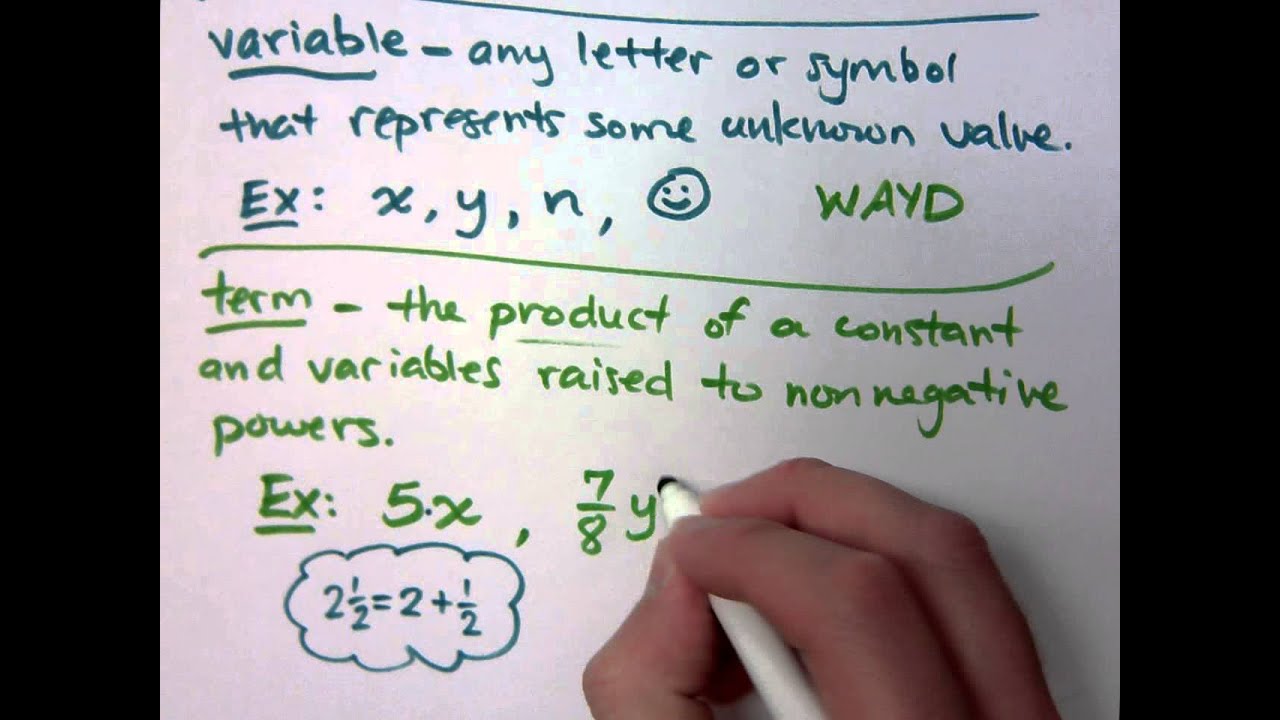 variable – any letter or symbol
that represents some unknown value.
Ex: x, y, n, ☺ WAYD
term – the product of a constant
and variables raised to nonnegative
powers.
Ex: 5·x , 7/8 y
2 1/2 = 2 + 1/2